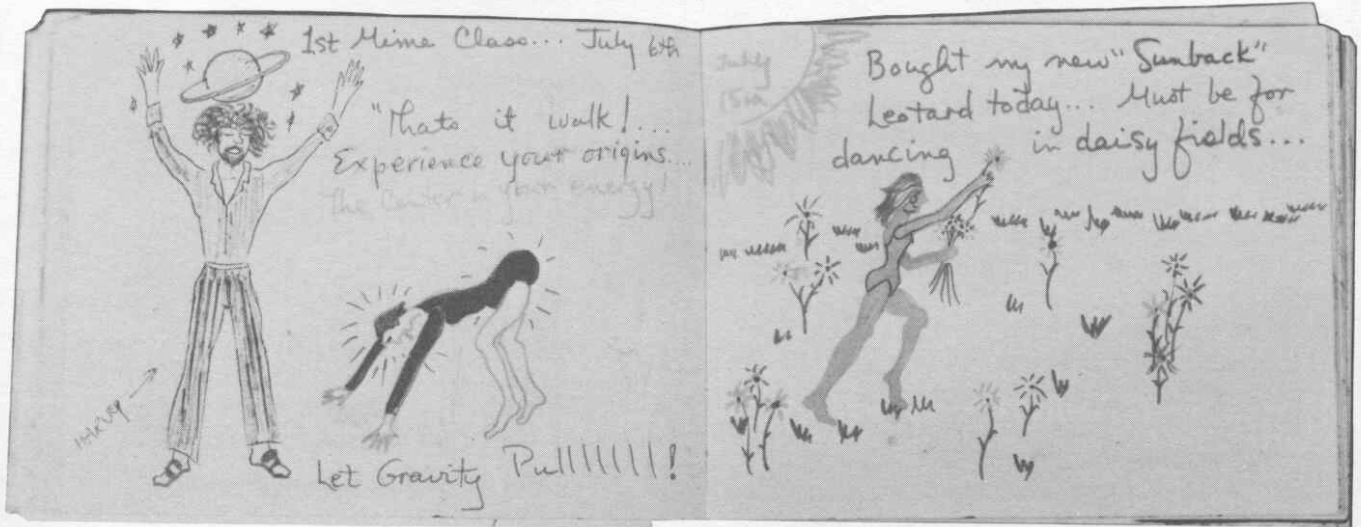 1st Mime Class... July 6th
"Thats it walk!...
Experience your origins....
The Center is your energy!
HARVEY
Let Gravity Pullllllll!
July
15th
Bought my new "Sunback"
Leotard today... Must be for
dancing in daisy fields...